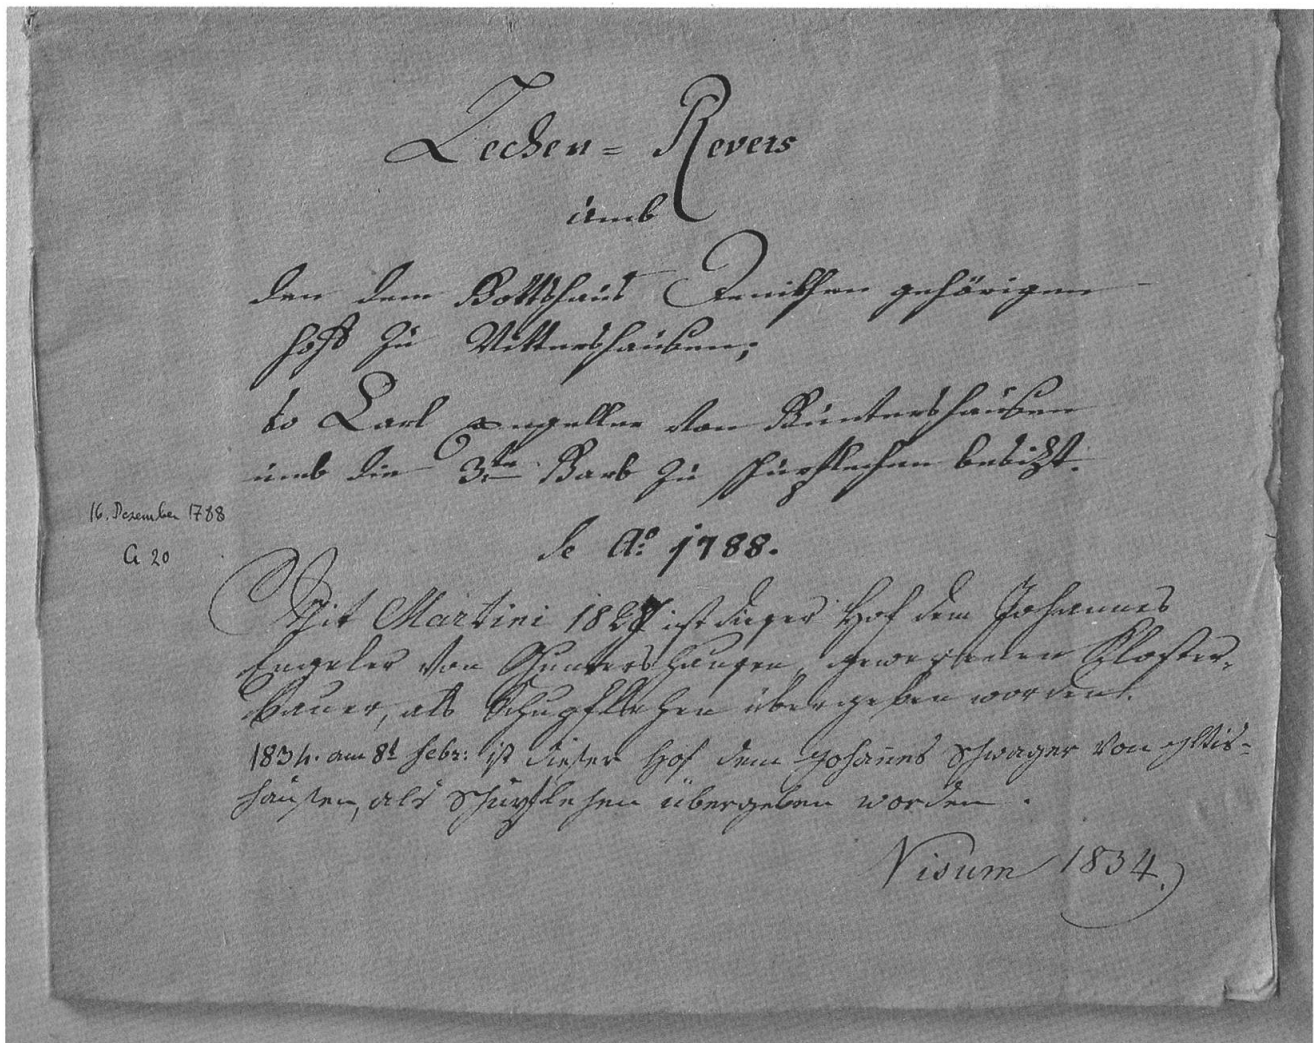 Lechen= Revers
umb
den dem Gottshaus Denikhen gehörigen
Hoff zu Vittershausen;
so Carl Engeller von Güntershausen
umb die 3.te Garb zu Schupflechen besitzt.
de Ao: 1788.
16. Dezember 1788
C 20
Mit Martini 1827 ist dieser Hof dem Johannes
Engeler von Guntershausen, gewesenen Kloster-
bauer, als Schupflehen übergeben worden.
1834. am 8t Febr: ist dieser Hof dem Johañes Schwager von Iltis-
hausen, als Schupflehen übergeben worden.
Visum 1834.